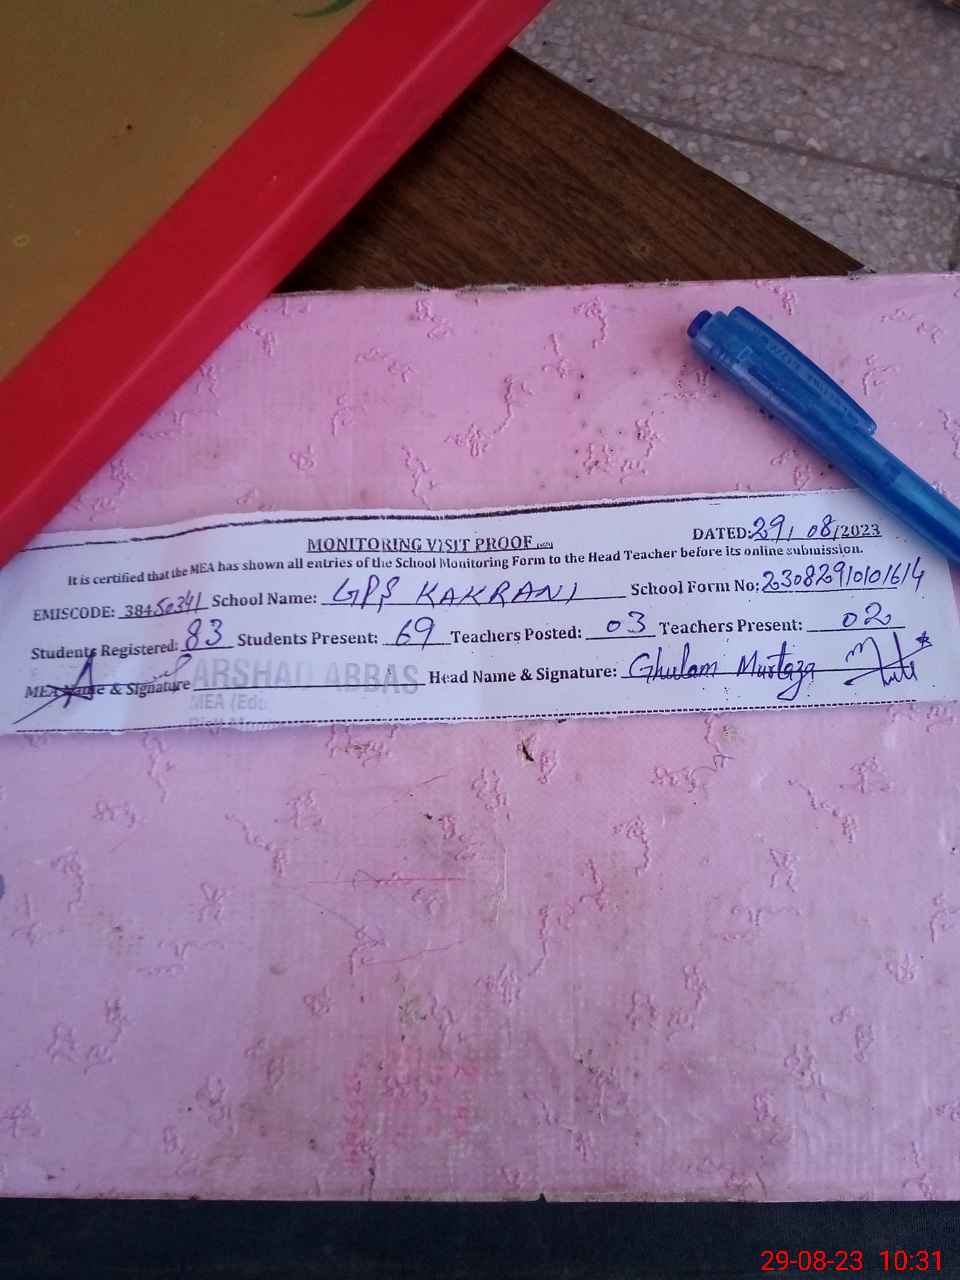 MONITORING VISIT PROOF
DATED: 29/08/2023
It is certified that the MEA has shown all entries of the School Monitoring Form to the Head Teacher before its online submission.
EMISCODE: 38450341 School Name: GPS KAKRANI School Form No: 23082910101614
Students Registered: 83 Students Present: 69 Teachers Posted: 03 Teachers Present: 02
MEA Name & Signature ARSHAD ABBAS Head Name & Signature: Ghulam Murtaza
MEA (Edu
29-08-23 10:31